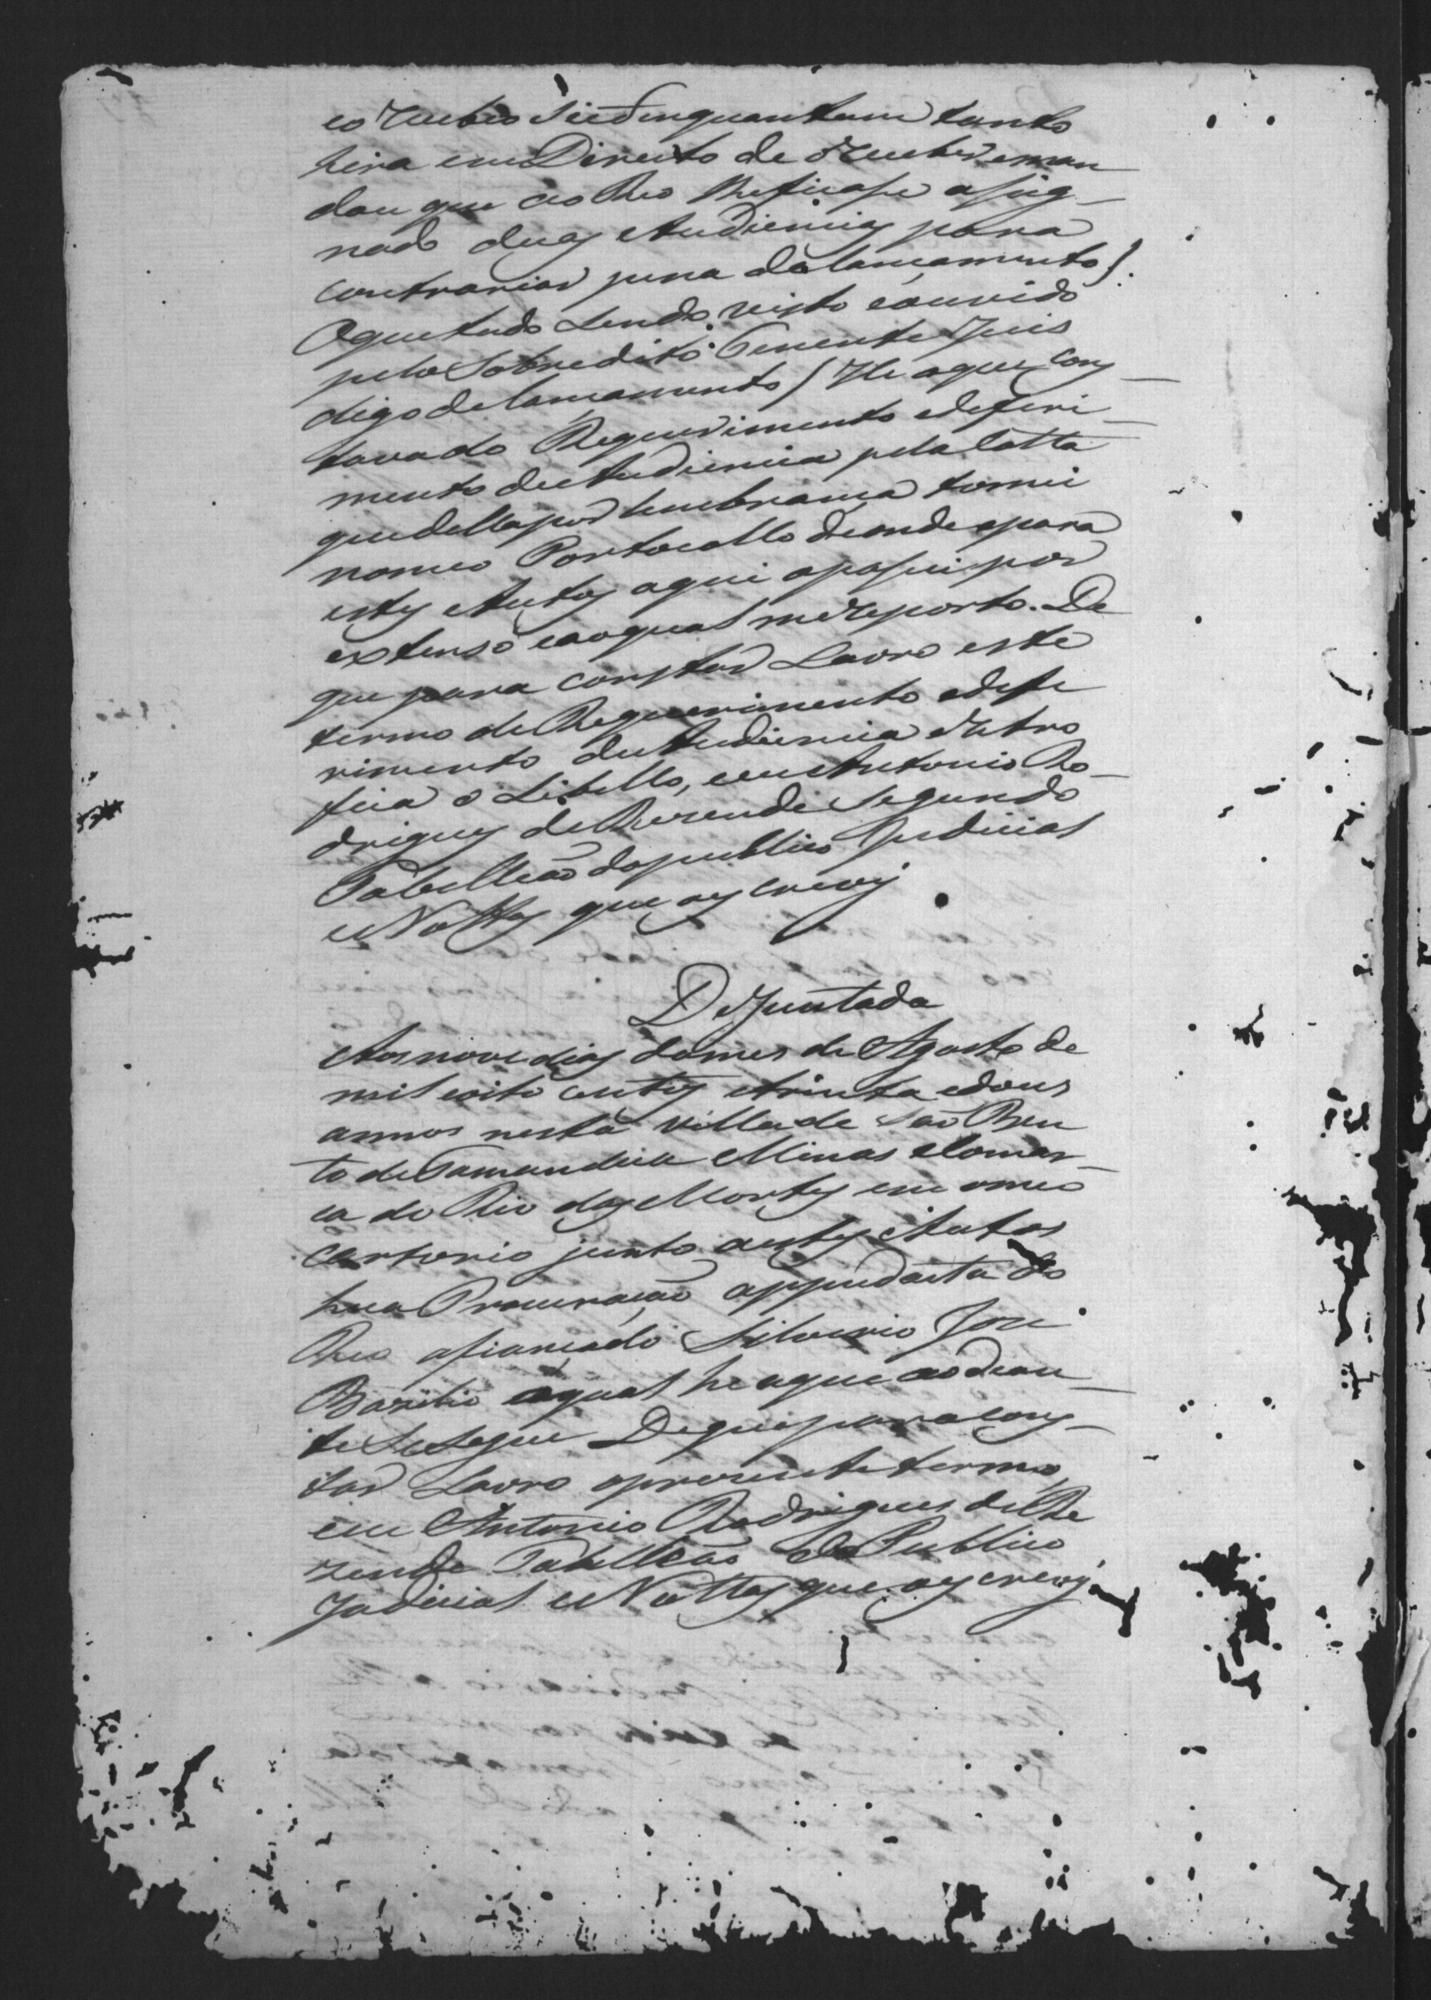 eo recebeo Siedinquantum tanto
hera em Direito de receber eman
dou que ao Reo lhe ficase asig-
nado duas Audiencias para
contrariar pena de lancamento
O que tudo sendo visto e ouvido
pelo Sobredito Tenente Juis
digo de lancamento / He o que cons-
tava do Requerimento edeferi-
mento de Audiencia pela Cotta
que della por lembranca tomei
no meo Portocollo de onde para
estes Autos aqui apasei por
extenso e ao qual me reporto. De
que para constar Lavro este
termo de Requerimento edefe
rimento de Audiencia e retro
fica o Libello, eu Antonio Ro-
drigues de Rezende Segundo
Tabelleão do publico Judicial
e Nottas que escrevy
De Juntada
Aos nove dias do mes de Agosto de
mil eoito centos e trinta e dous
annos nesta Villa de Sao Ben
to de Tamandua Minas e Comar-
ca do Rio das Mortes em o meo
Cartorio junto a estes Autos
hua Procuracão appudacta do
Reo afiancado Silverio José
Bazilio a qual he aque ao dian-
te Se Segue De que para cons-
tar Lavro o presente termo,
eu Antonio Rodrigues de Re
zende Tabelleão do Publico
Judicial e Nottas que escrevy